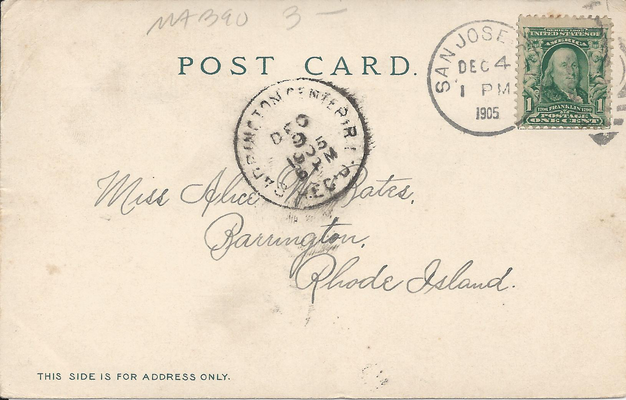 MA390 3 -
POST CARD.
SAN JOSE
DEC 4
1 PM
1905
UNITED STATES OF
1 FRANKLIN 1
POSTAGE
ONE CENT
BARRINGTON CENTER R.I.
DEC
REC'D
Miss Alice Bates,
Barrington,
Rhode Island.
THIS SIDE IS FOR ADDRESS ONLY.